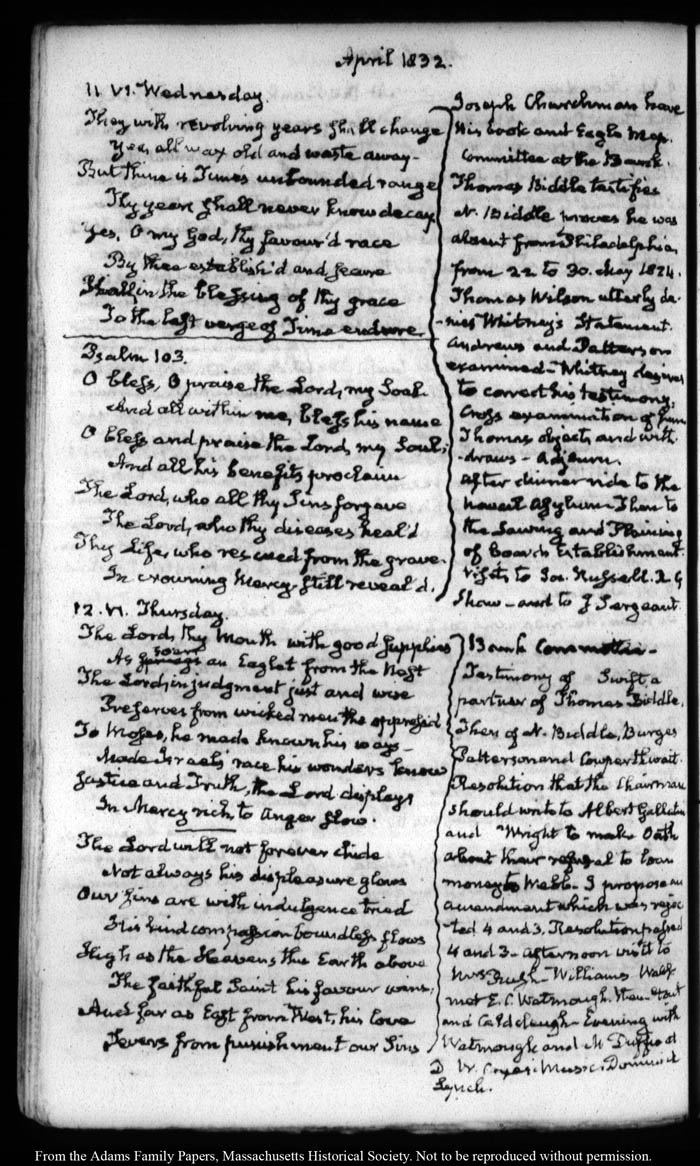 April 1832.
11. VI. Wednesday.
They with revolving years shall change
Yea, all wax old and waste away—
But thine is Time's unbounded range
Thy years shall never know decay
Yes, O my God, thy favour'd race
By thee establish'd and secure
Shall in the blessing of thy grace
To the last verge of Time endure
Psalm 103.
O bless, O praise the Lord, my Soul
And all within me, bless his name
O bless and praise the Lord, my Soul;
And all his benefits proclaim
The Lord, who all thy Sins forgave
The Lord, who thy diseases heal'd
Thy Life, who rescued from the grave.
In crowning Mercy still reveal'd.
Joseph Churchman leave
his book and Eagle Map.
Committee at the Bank.
Thomas Biddle testifies
N. Biddle proves he was
absent from Philadelphia,
from 22 to 30. May 1824.
Thomas Wilson utterly de-
-nies Whitney's Statement.
Andrews and Patterson
examined—Whitney desires
to correct his testimony.
Cross examination of him
Thomas objects, and with-
-draws—Adjourn.
After dinner ride to the
Then to
the Sawing and Plaining
of Boards Establishment.
visits to Jos. Russell. R G
Shaw—and to J Sergeant.
12. VI. Thursday.
The Lord, thy Mouth with good supplies
As soars an Eaglet from the Nest
The Lord, in judgment just and wise
Preserves from wicked men the oppressed
To Moses, he made known his ways—
Made Israel's race his wonders know
Justice and Truth, the Lord displays
In Mercy rich, to anger slow.
The Lord will not forever chide
Not always his displeasure glows
Our Sins are with indulgence tried
His kind compassion boundless flows
High as the Heavens the Earth above
The faithful Saint his favour wins;
And far as East from West, his love
Severs from punishment our Sins
Bank Committee—
Testimony of Swift, a
partner of Thomas Biddle.
Then of N. Biddle, Burges
Patterson and Cowperthwait.
Resolution that the Chairman
should write to Albert Gallatin
and Wright to make Oath
about their refusal to loan
money to Webb. I propose an
amendment which was rejec
ted 4 and 3. Resolution passed
4 and 3—Afternoon visit to
Mrs Rush—Williams Walk
met E. C. Watmough.
and Caldcleugh—Evening with
Watmough and M Duffie at
D W. Coxe's. Music. Dominick
Lynch.
From the Adams Family Papers, Massachusetts Historical Society. Not to be reproduced without permission.